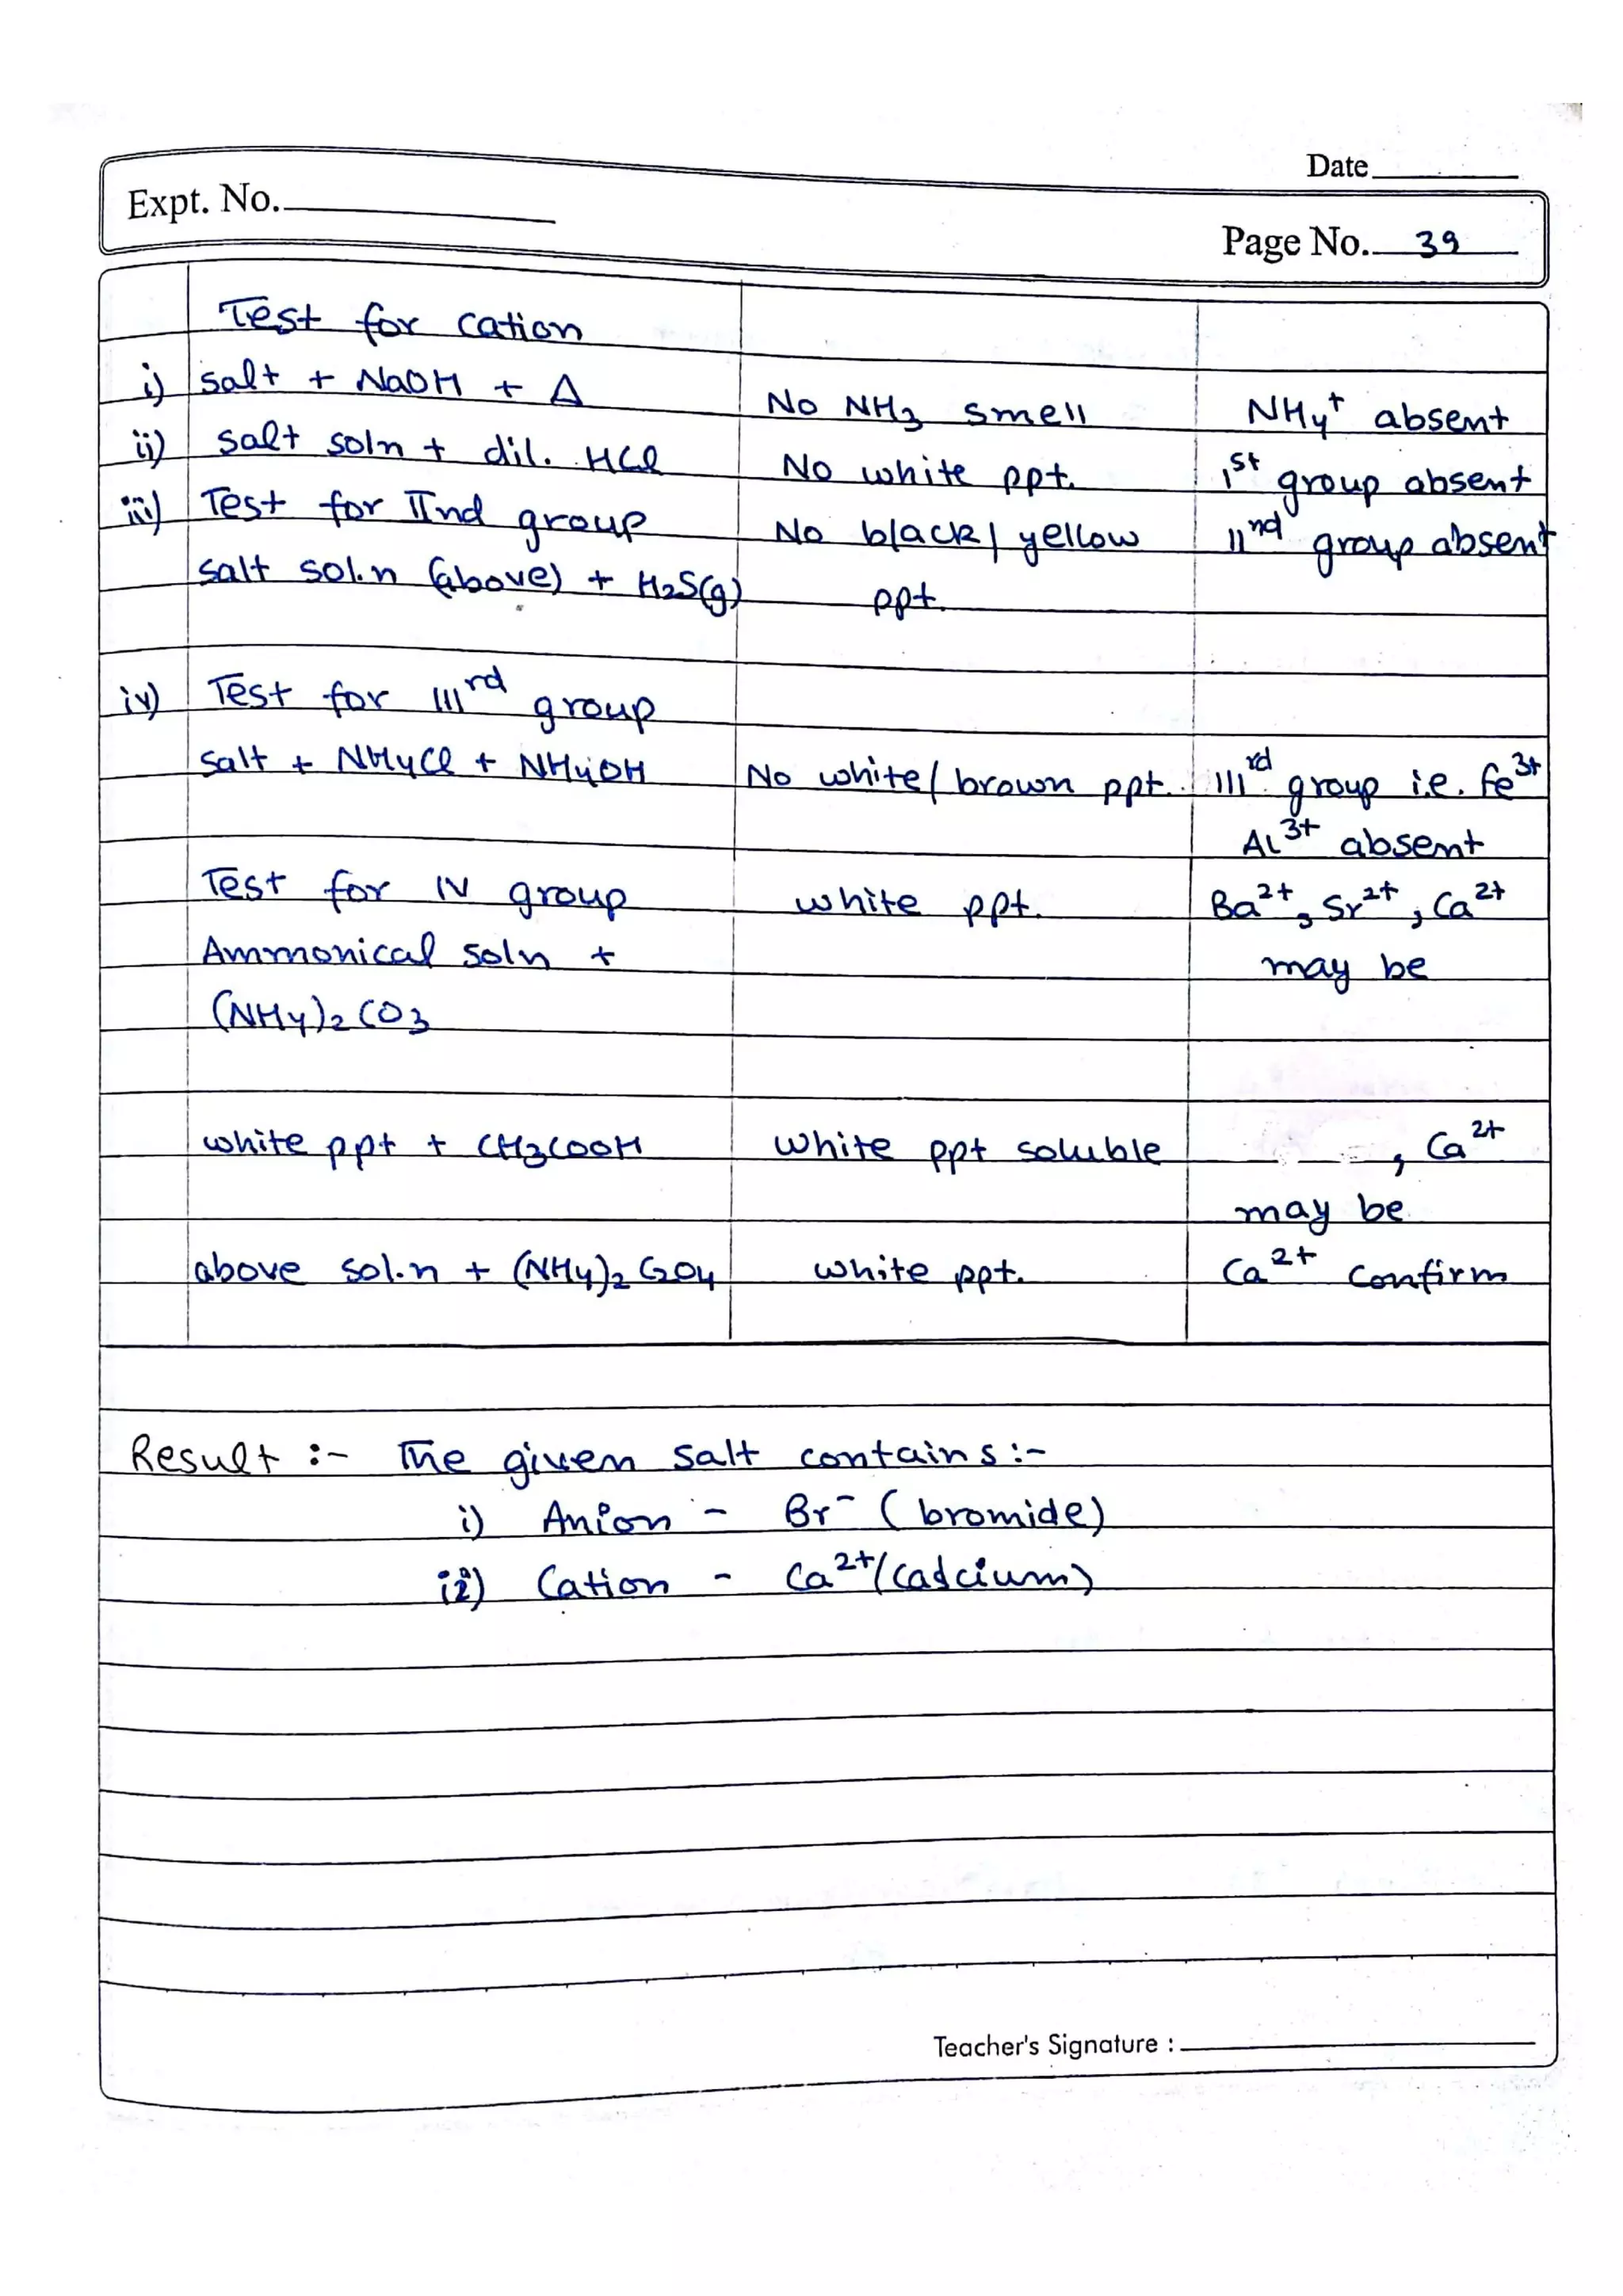 Date
Expt. No.
Page No. 39
Test for cation
i) salt + NaOH + Δ No NH3 smell NH4+ absent
ii) salt soln + dil. HCl No white ppt. 1st group absent
iii) Test for IInd group No black/yellow IInd group absent
salt sol.n (above) + H2S(g) ppt.
iv) Test for IIIrd group
salt + NH4Cl + NH4OH No white/brown ppt. IIIrd group i.e. Fe3+
Al3+ absent
Test for IV group white ppt. Ba2+, Sr2+, Ca2+
Ammonical soln + may be
(NH4)2CO3
white ppt + CH3COOH white ppt soluble , Ca2+
may be
above sol.n + (NH4)2C2O4 white ppt. Ca2+ confirm
Result :- The given salt contains :-
i) Anion - Br- (bromide)
ii) Cation - Ca2+ (calcium)
Teacher's Signature :